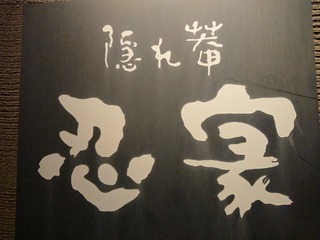 隠れ菴
忍家